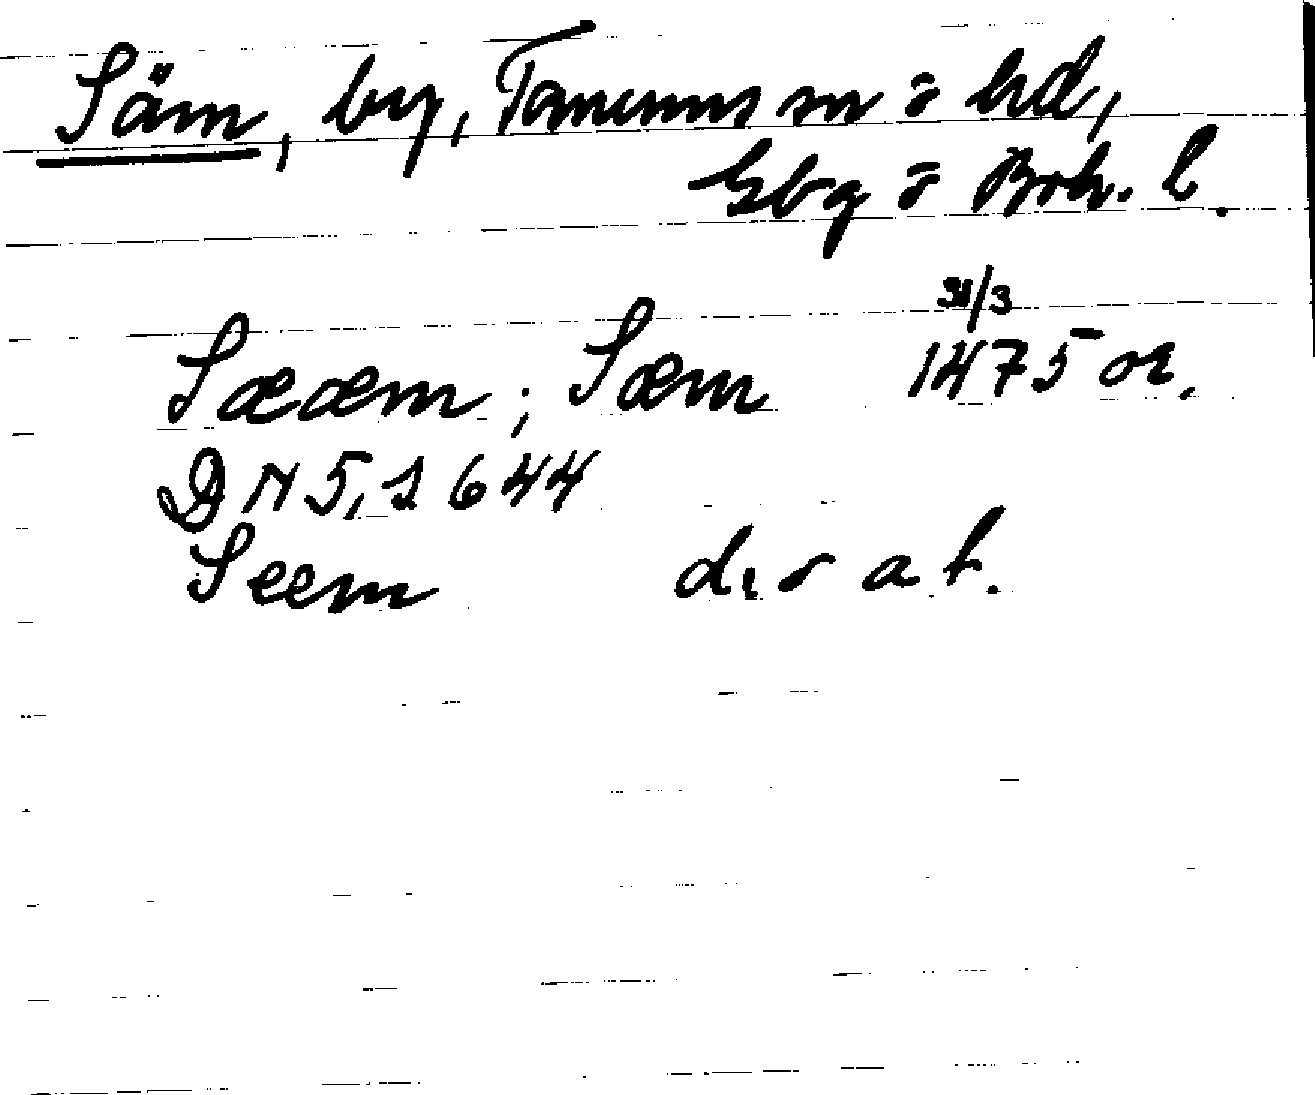 Säm, by, Tanums sn o hd,
Gbg o Boh. l.
Sææm; Sæm 31/3 1475 or.
DN 5, 2 644
Seem d:o a t.